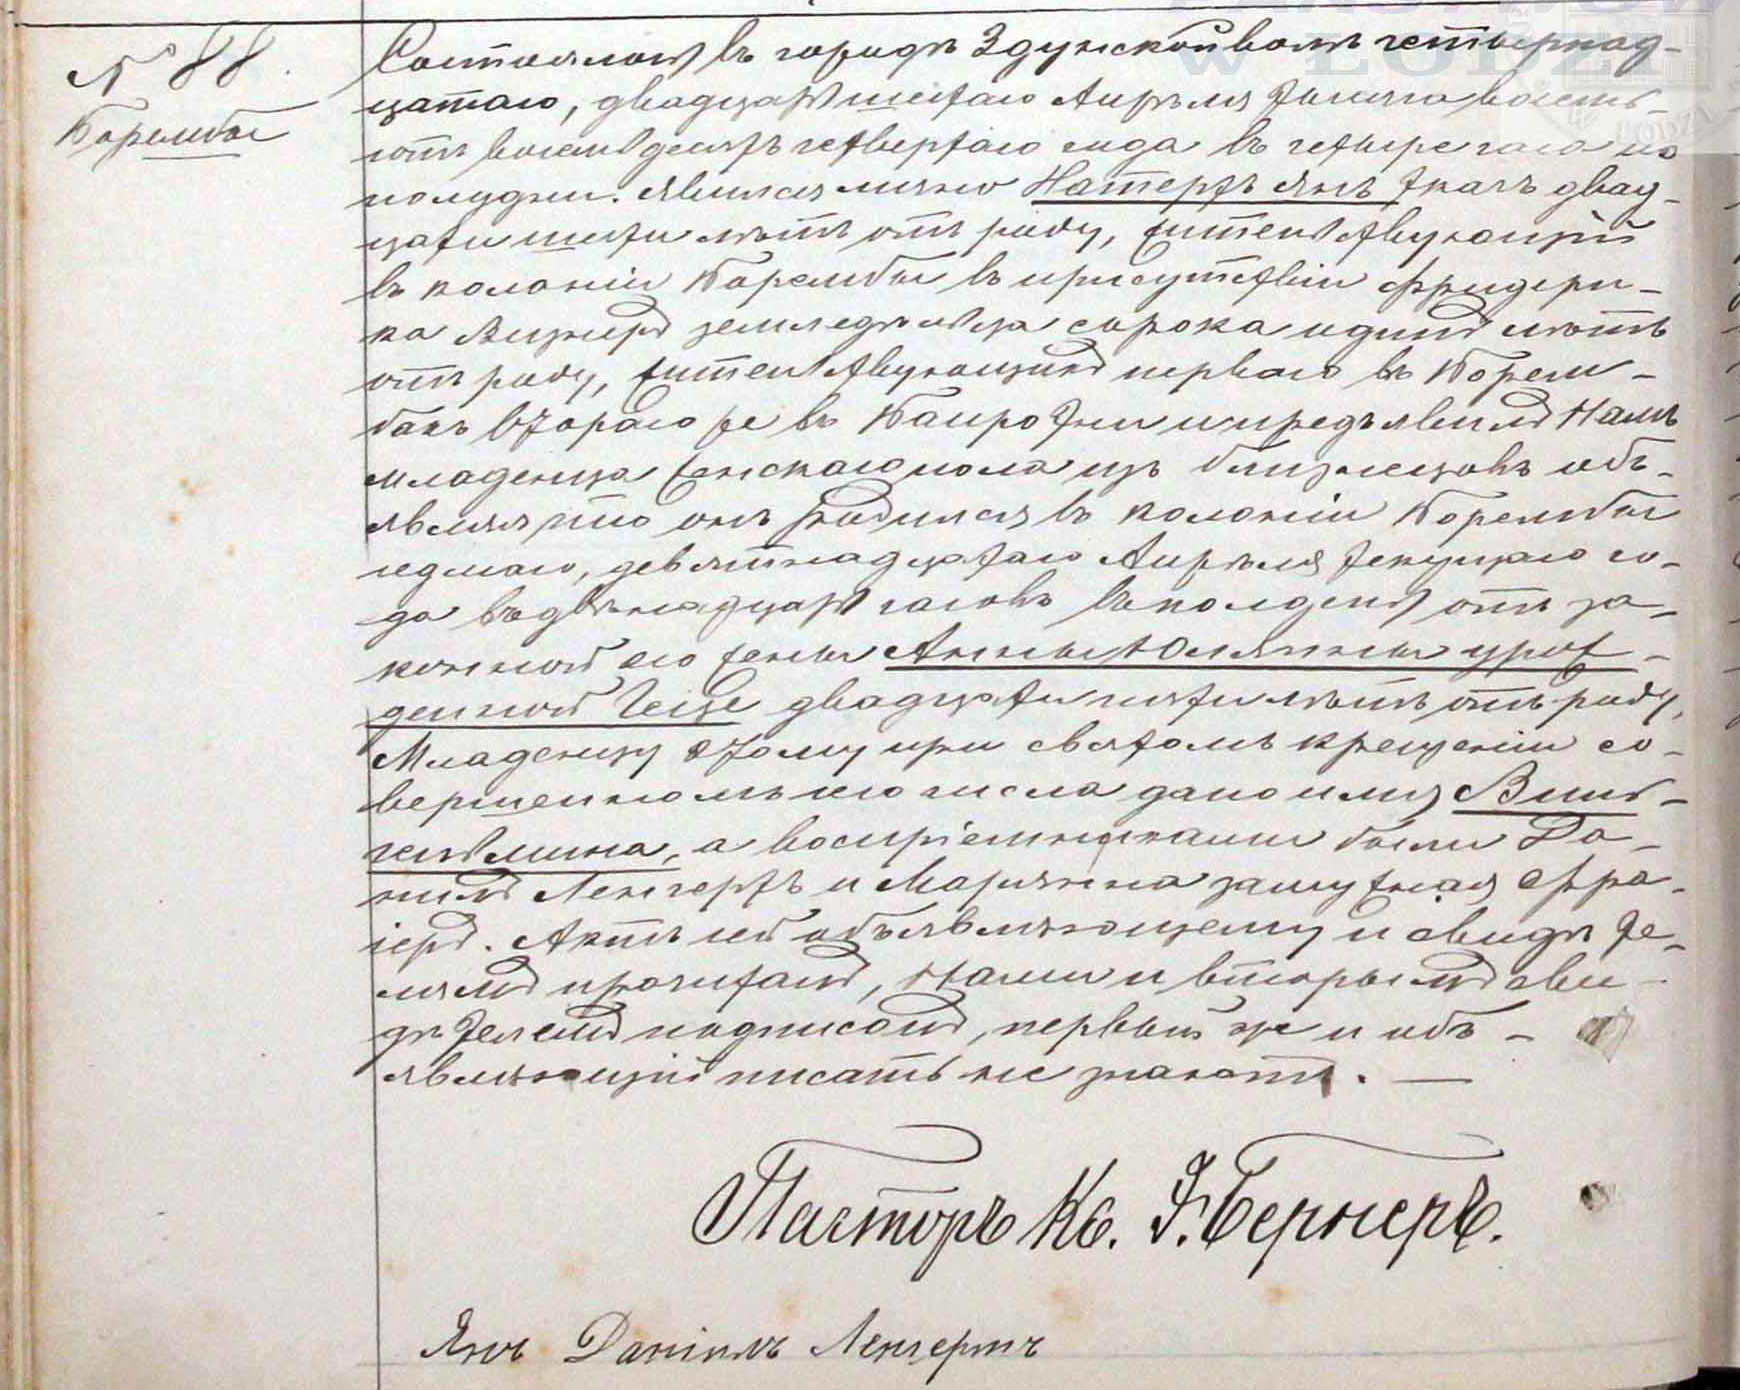 W ŁODZI
№ 88.
Борембы
Состоялось въ городѣ Здунской волѣ четырнад-
цатаго, двадцать шестаго Апрѣля тысяча восемь-
сотъ восемьдесятъ четвертаго года въ четыре часа по
полудни. Явился лично Натертъ Янъ ткачъ двад-
цати шести лѣтъ отъ роду, жительствующій
въ колоніи Борембы въ присутствіи Фридери-
ка земледѣльца сорока одинъ лѣтъ
отъ роду, жительствующихъ перваго въ Борем-
бахъ втораго же въ и предъявилъ Намъ
младенца женскаго пола изъ близнецовъ объ-
являя что онъ родился въ колоніи Борембы
седмаго, девятнадцатаго Апрѣля текущаго го-
да въ двѣнадцать часовъ въ полдень отъ за-
конной его жены Анны Юліянны урож-
денной двадцати пяти лѣтъ отъ роду,
Младенцу этому при святомъ крещеніи со-
вершенномъ сего числа дано имя Виль-
гельмина, а воспріемниками были Да-
нилъ Ленгертъ и Марянна замужная
Актъ сей объявляющему и свидѣте-
лямъ прочитанъ, Нами и вторымъ сви-
дѣтелемъ подписанъ, первый же и объ-
являющій писать не знаютъ. —
Пасторъ Кс. Э. Бернеръ.
Янъ Даніилъ Ленгертъ